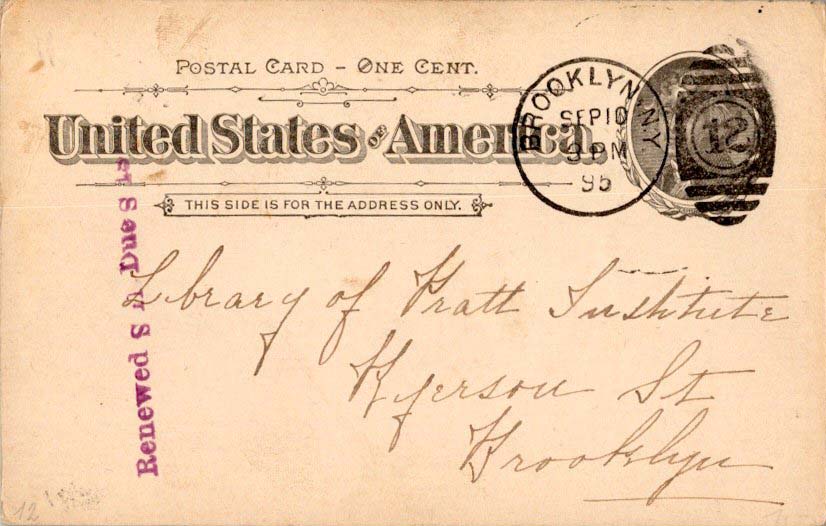 POSTAL CARD - ONE CENT.
United States of America
THIS SIDE IS FOR THE ADDRESS ONLY.
BROOKLYN, NY
SEP 10
PM
95
12
Library of Pratt Institute
Ryerson St
Brooklyn
Renewed S Due S
12